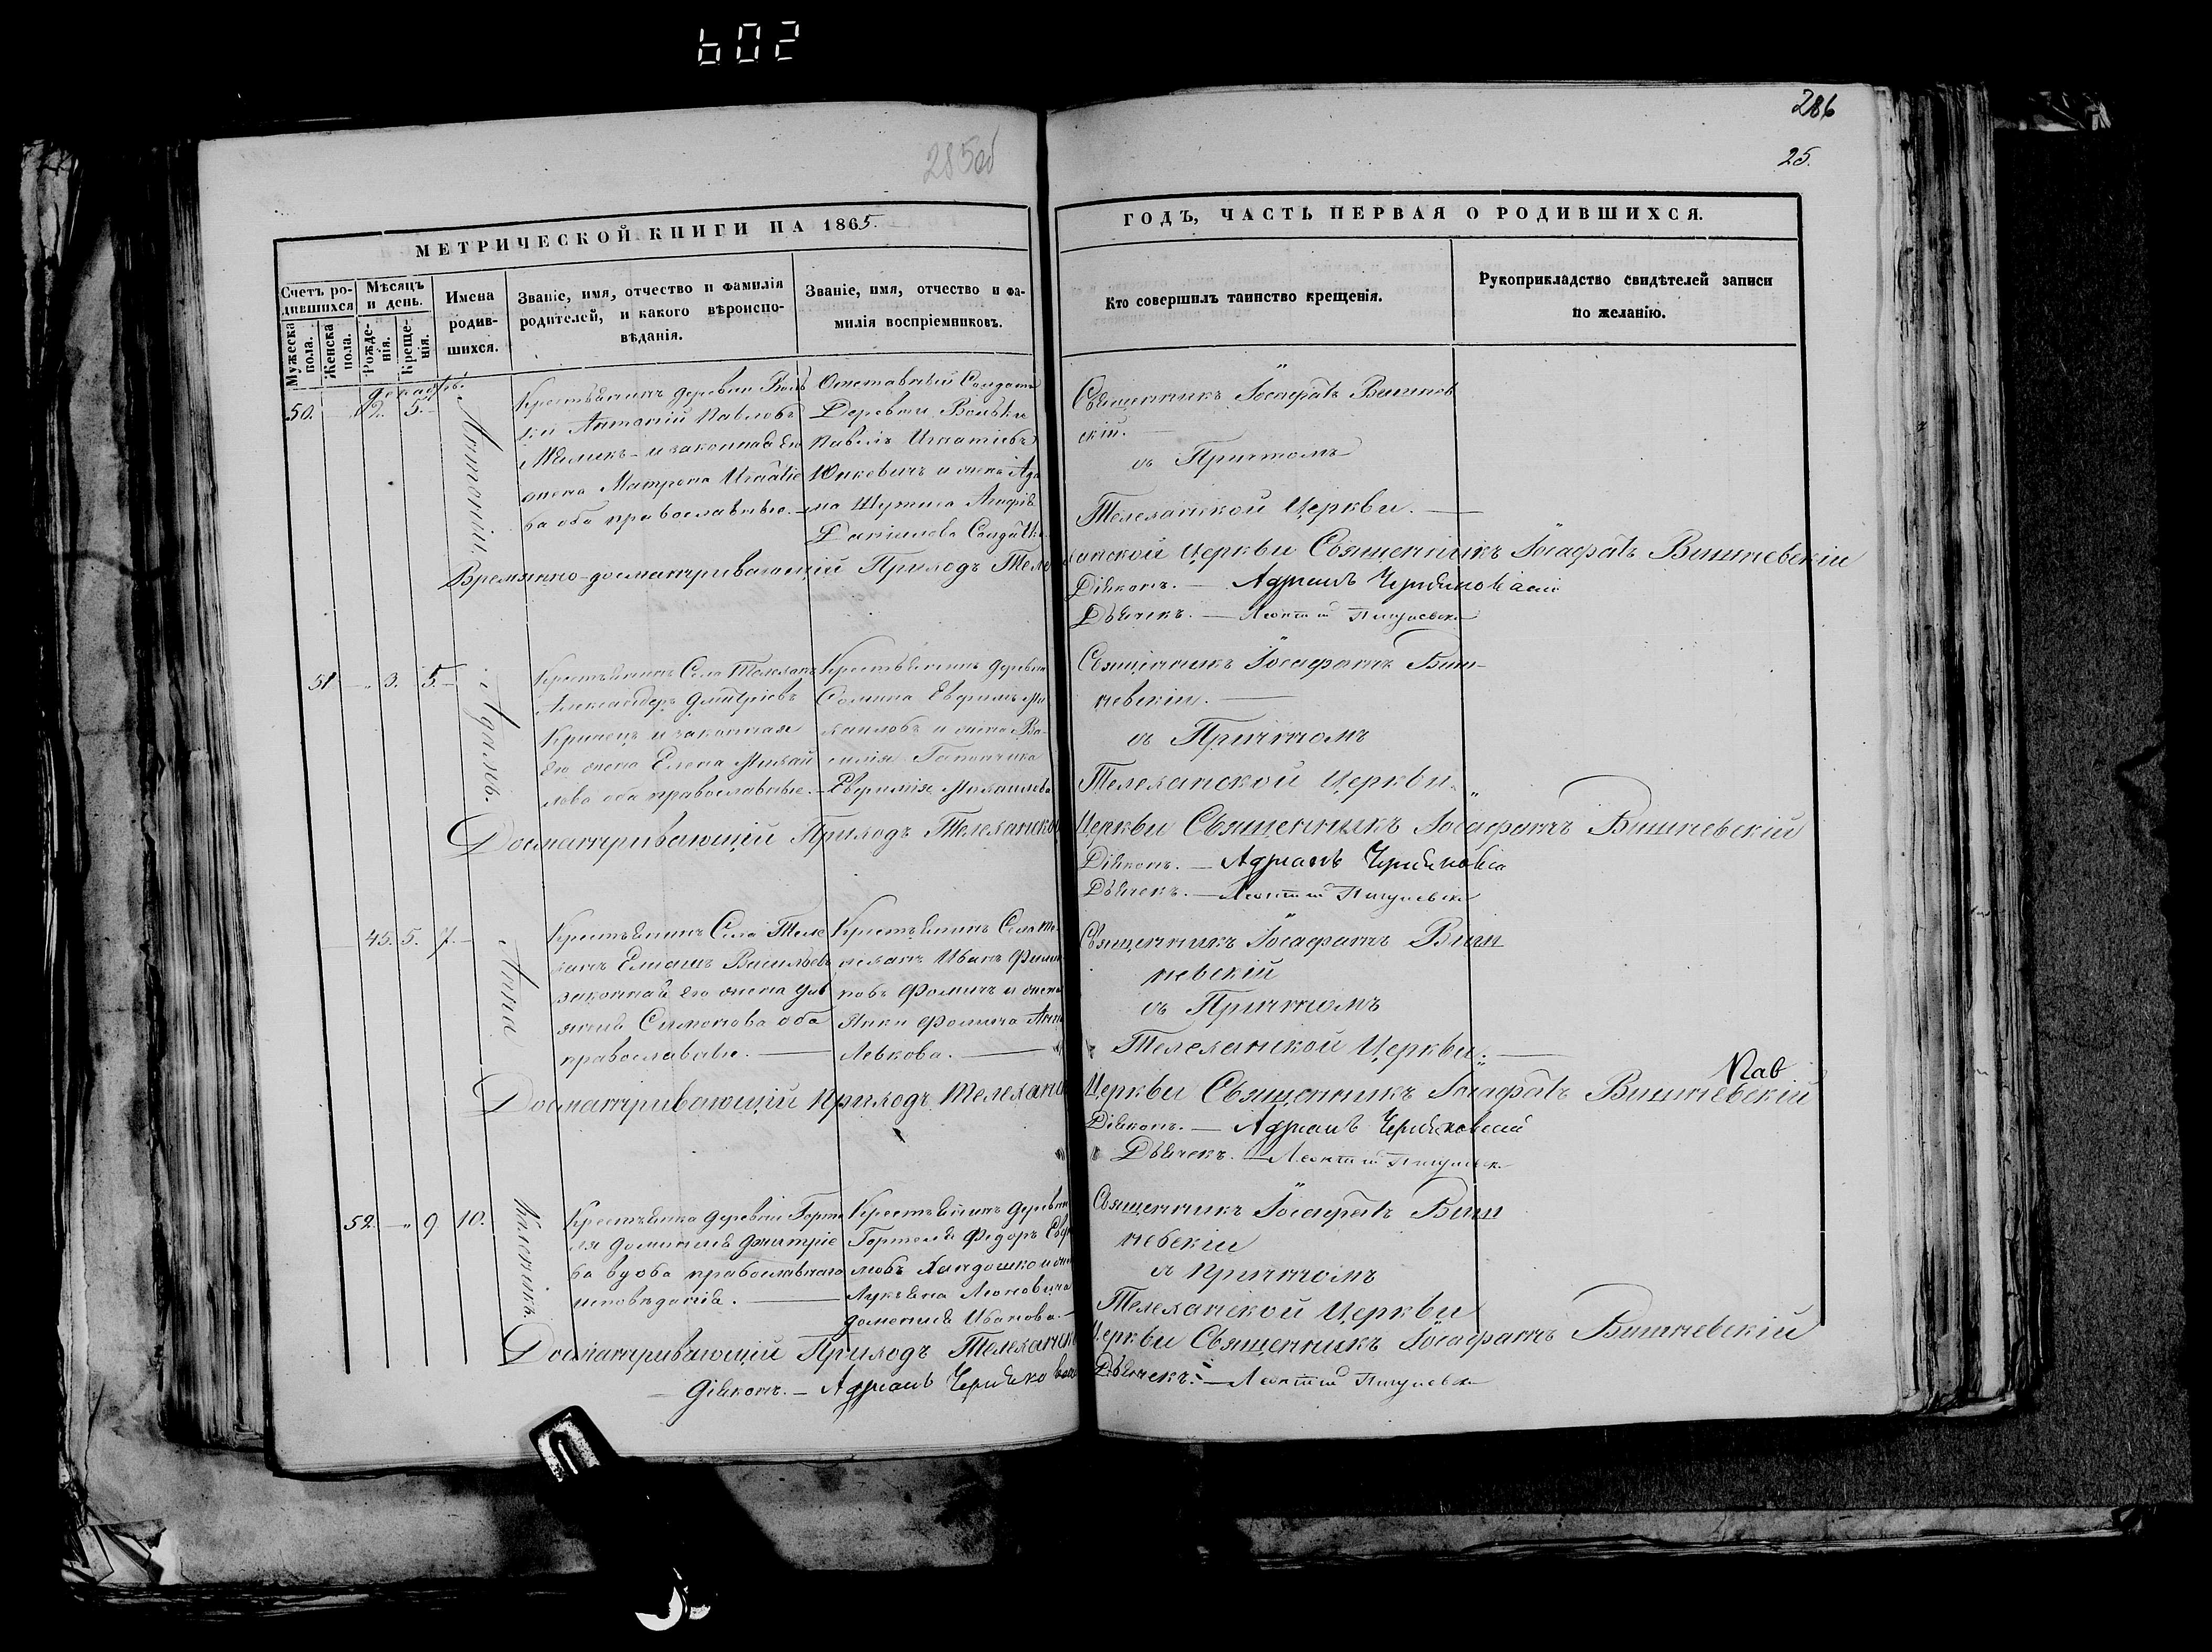 602
286
285об
25.
МЕТРИЧЕСКОЙ КНИГИ НА 1865.
ГОДЪ, ЧАСТЬ ПЕРВАЯ О РОДИВШИХСЯ.
Счетъ родившихся
Мужеска пола.
Женска пола.
Мѣсяцъ и день.
Рожденія.
Крещенія.
Имена родившихся.
Званіе, имя, отчество и фамилія родителей, и какого вѣроисповѣданія.
Званіе, имя, отчество и фамилія воспріемниковъ.
Кто совершилъ таинство крещенія.
Рукоприкладство свидѣтелей записи по желанію.
декабрь.
50. 2. 5.
Антоній.
Крестьянинъ деревни Воль
ки Антоній Павловъ
и законная его
жена Матрона Игнатіе
ва оба православные.
Отставный Солдатъ
Деревни Вольки
Павелъ Игнатіевъ
Юнкевичъ и жена Ада
ма Шутика Агафія
Даніилова
Священникъ Іосафатъ Вишнев
скій.
съ Причтомъ
Телеханской Церкви.
Временно-досматривающій Приходъ Телеханской Церкви Священникъ Іосафатъ Вишневскій
Діаконъ. — Адріанъ
Дьячекъ. — Леонтій
51 — 3. 5.
Адамъ.
Крестьянинъ Села Телеханъ
Александръ Дмитріевъ
и законная
его жена Елена Михаи
лова оба православные.
Крестьянинъ деревни
Сомина Евфимъ Ми
хаиловъ и жена Ва
силія
Евфимія Михаилова
Священникъ Іосафатъ Виш-
невскій.
съ Причтомъ
Телеханской Церкви.
Досматривающій Приходъ Телеханской Церкви Священникъ Іосафатъ Вишневскій
Діаконъ. — Адріанъ
Дьячекъ. — Леонтій
45. 5. 7.
Анна
Крестьянинъ Села Теле
ханъ Еліашъ Васильевъ
законная его жена Уль
яна Симонова оба
православные.
Крестьянинъ Села Те
леханъ Иванъ Филип
повъ Фоминъ и жена
Янки Фомича Анна
Левкова.
Священникъ Іосафатъ Виш
невскій
съ Причтомъ
Телеханской Церкви.
Досматривающій Приходъ Телеханской Церкви Священникъ Іосафатъ Вишневскій
Діаконъ. — Адріанъ
Дьячекъ. — Леонтій
52. — 9 10.
Крестьянка деревни Горто
ля Домникія Дмитріе
ва вдова православнаго
исповѣданія.
Крестьянинъ деревни
Гортоля Федоръ
Хандошко и жена
Лукьяна Леоновича
Доменика Иванова.
Священникъ Іосафатъ Виш
невскій
съ причтомъ
Телеханской Церкви
Досматривающій Приходъ Телеханской Церкви Священникъ Іосафатъ Вишневскій
Діаконъ. — Адріанъ
Дьячекъ. — Леонтій